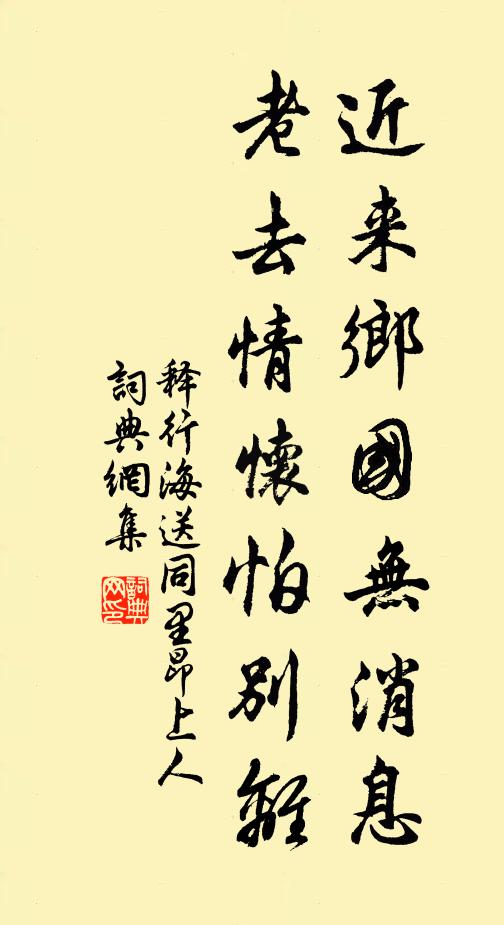 近来鄉國無消息
老去情懷怕別離
释行海送同里昂上人
詞典網集
詞典網印